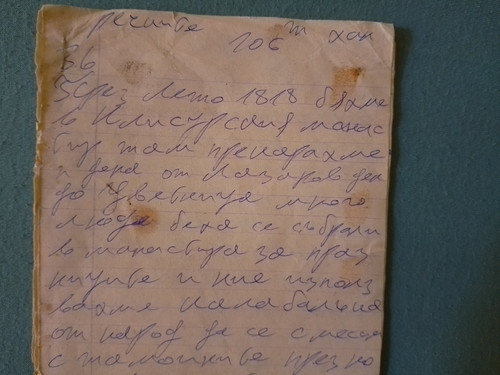 речните 106 т хан
36
През лето 1818 бяхме
в Клисурския манас
тир там прекарахме
и дена от Лазаров ден
до Цветница много
люде беха се събрали
в манастира за праз
ниците и ние използ
вахме калабалъка
от народ да се смесим
с тамошните през но